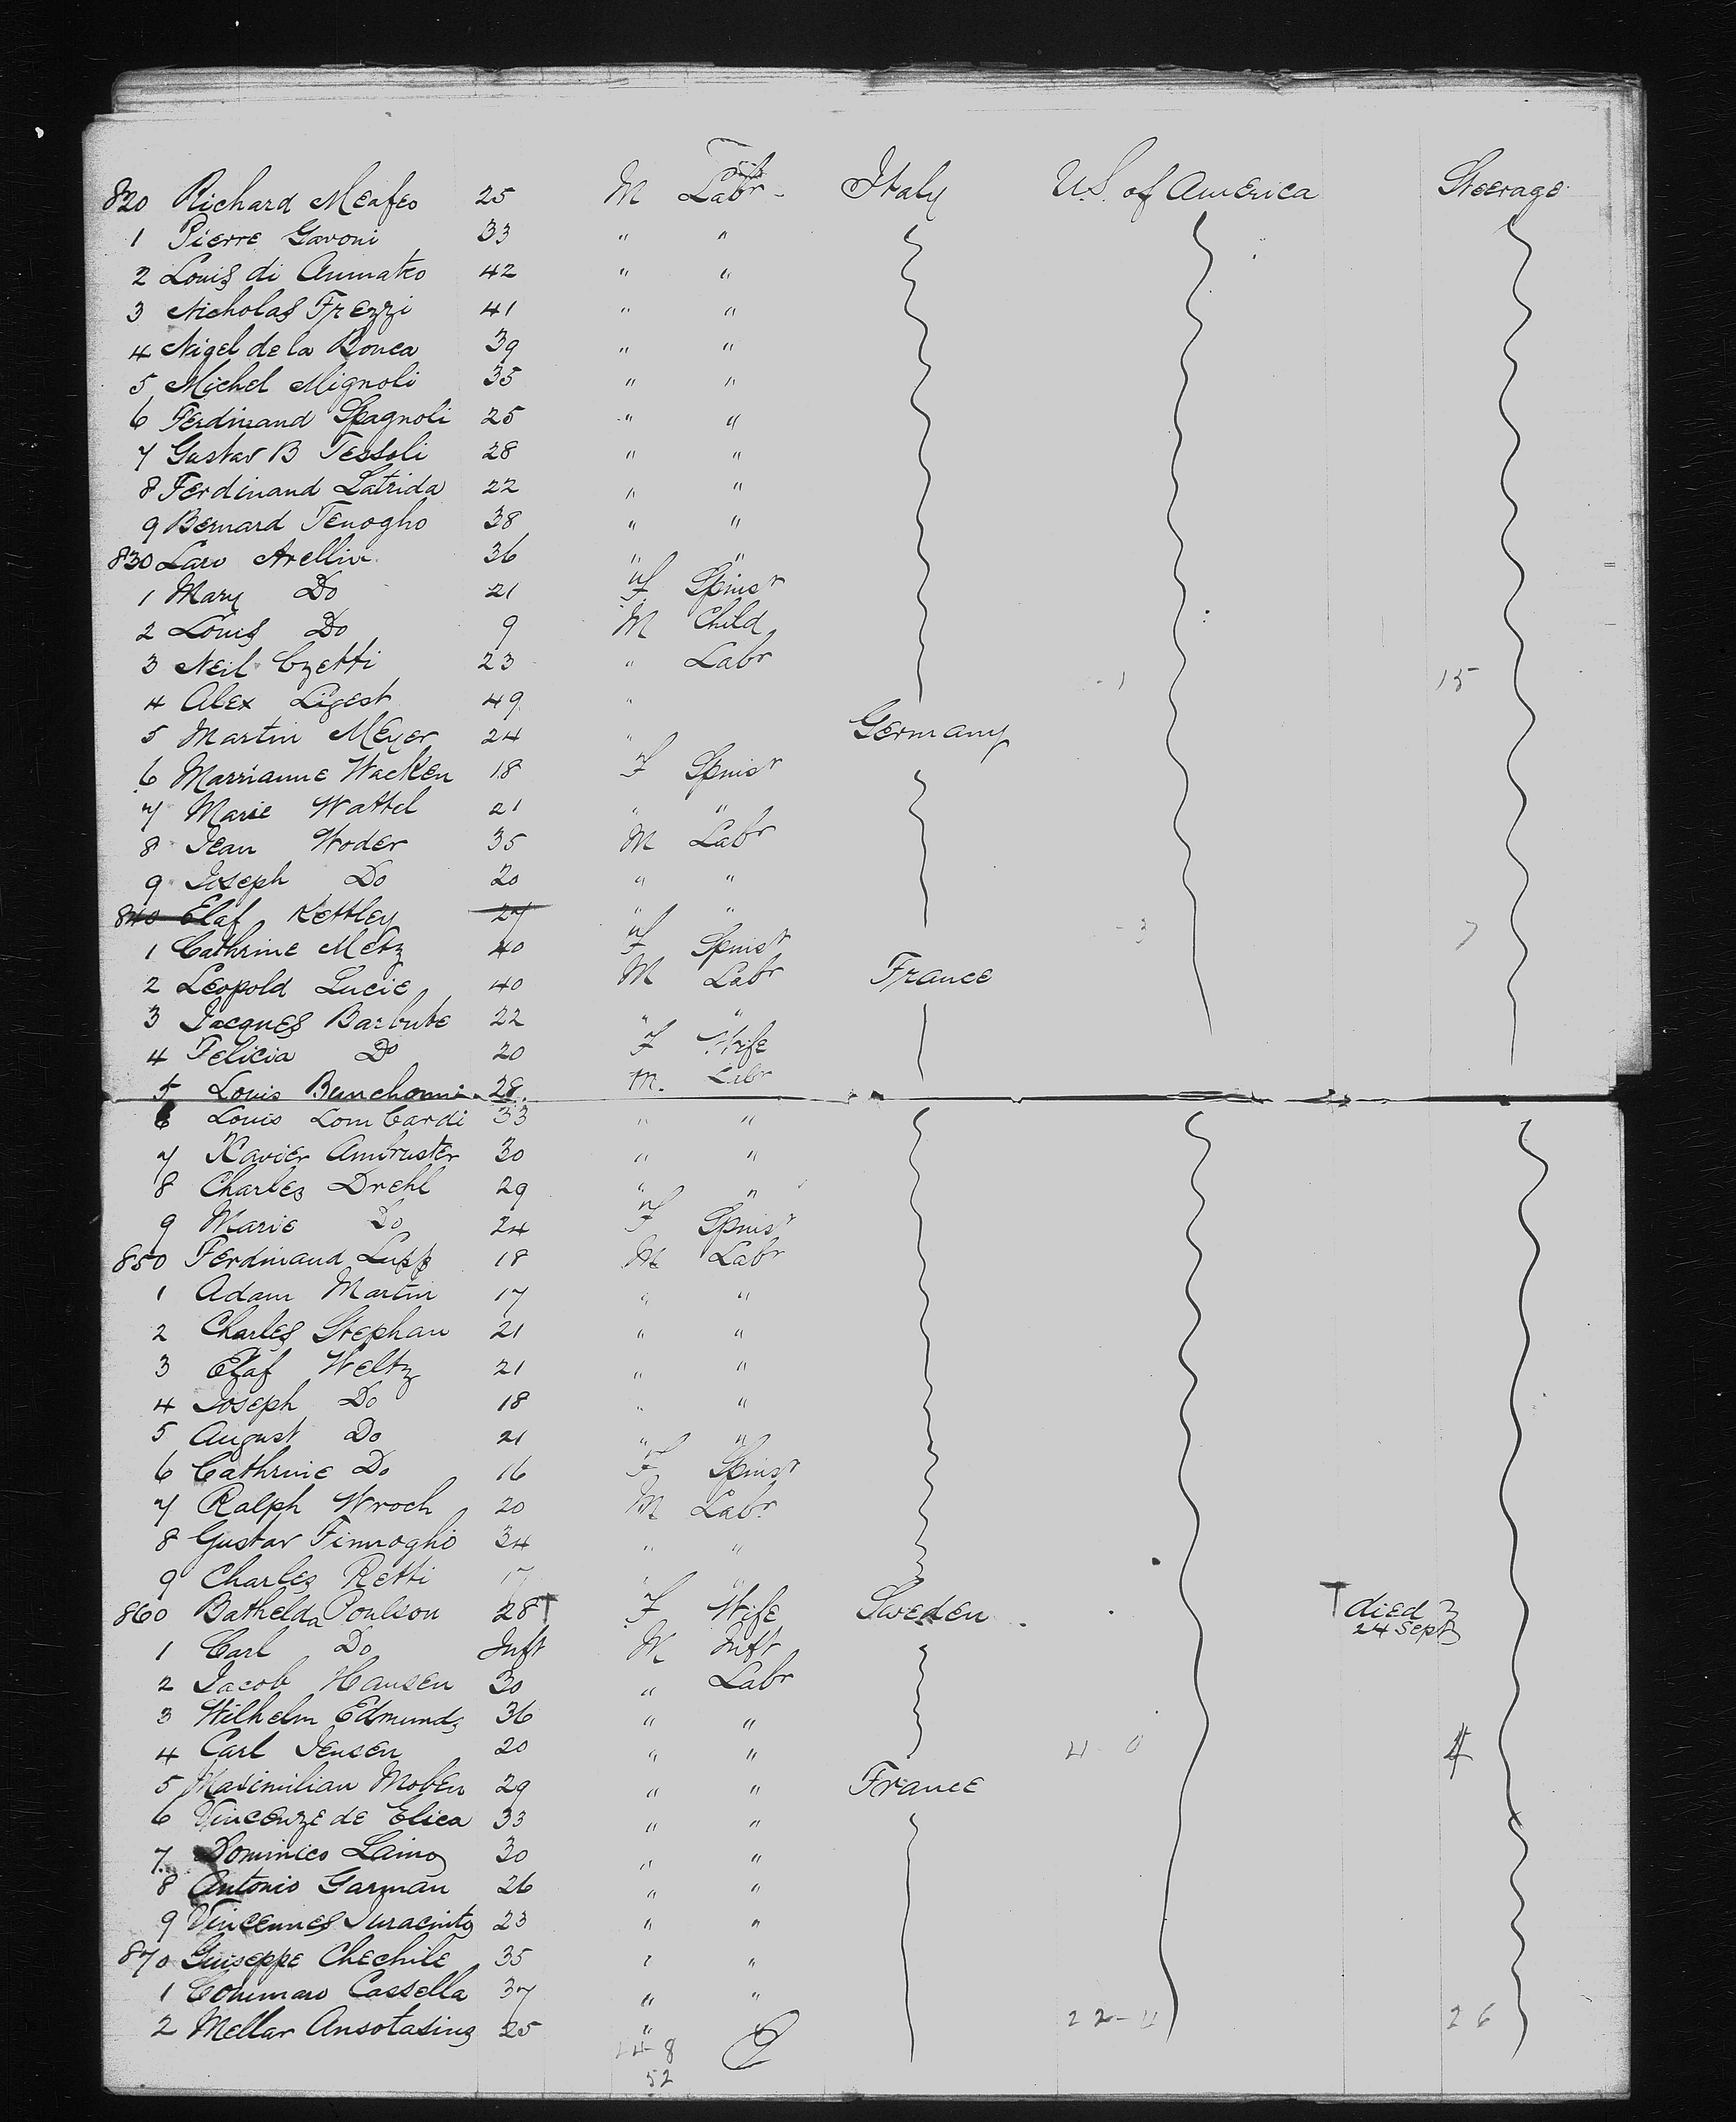 820 Richard Meafeo 25 M Labr Italy U.S. of America Steerage
1 Pierre Gavoni 33 " "
2 Louis di Anmatto 42 " "
3 Nicholas Frezzi 41 " "
4 Nigel de la Bonca 39 " "
5 Michel Mignoli 35 " "
6 Ferdinand Spagnoli 25 " "
7 Gustav B Tessoli 28 " "
8 Ferdinand Latrida 22 " "
9 Bernard Tenogho 38 " "
830 Laro Arellin 36 " "
1 Mary Do 21 F Spinst
2 Louis Do 9 M Child
3 Neil Czetti 23 " Labr 1 15
4 Alex Ligest 49 "
5 Martin Meyer 24 " Germany
6 Marrianne Wacken 18 F Spinst
7 Marie Wattel 21 " "
8 Jean Woder 35 M Labr
9 Joseph Do 20 " "
840 Elaf Kettley 27 " "
1 Cathrine Metz 40 F Spinst 3 7
2 Leopold Lucie 40 M Labr France
3 Jacques Barbute 22 " "
4 Felicia Do 20 F Wife
5 Louis Bunchomi 28 M. Labr
6 Louis Lombardi 33 " "
7 Xavier Ambruster 30 " "
8 Charles Drehl 29 " "
9 Marie Do 24 F Spinst
850 Ferdinand Lupp 18 M Labr
1 Adam Martin 17 " "
2 Charles Stephan 21 " "
3 Elaf Weltz 21 " "
4 Joseph Do 18 " "
5 August Do 21 " "
6 Cathrine Do 16 F Spinst
7 Ralph Wroch 20 M Labr
8 Gustav Finnogho 34 " "
9 Charles Retti 17 " "
860 Bathelda Poulson 28 † F Wife Sweden † died
24 Sept
1 Carl Do Inft M Inft
2 Jacob Hansen 30 " Labr
3 Wilhelm Edmunds 36 " "
4 Carl Jensen 20 " " 4 0 4
5 Maximilian Moben 29 " " France
6 Vincenze de Elica 33 " "
7 Dominico Laino 30 " "
8 Antonio Garman 26 " "
9 Vincennes Juracinto 23 " "
870 Guiseppe Chechile 35 " "
1 Commaro Cassella 37 " "
2 Mellar Ansotasing 25 " " 22 - 4 26
44 8
52